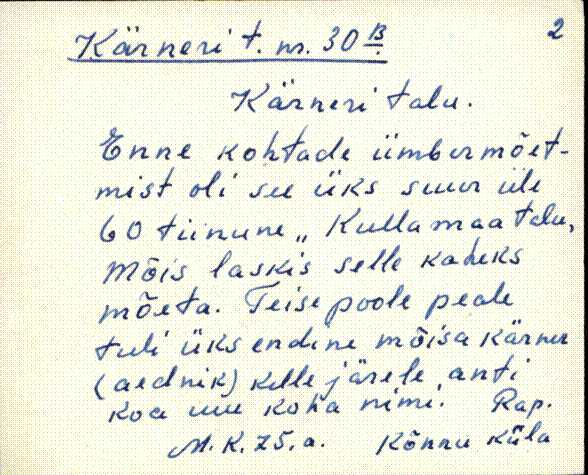 2
Kärneri t. nr. 30 B
Kärneri talu.
Enne kohtade ümbermõet-
mist oli see üks suur üle
60 tiinune „Kullamaa talu,
Mõis laskis selle kaheks
mõeta. Teise poole peale
tuli üks endine mõisa kärner
(aednik) kelle järele anti
koa uue koha nimi. Rap.
M. K. 75. a. Kõnnu küla